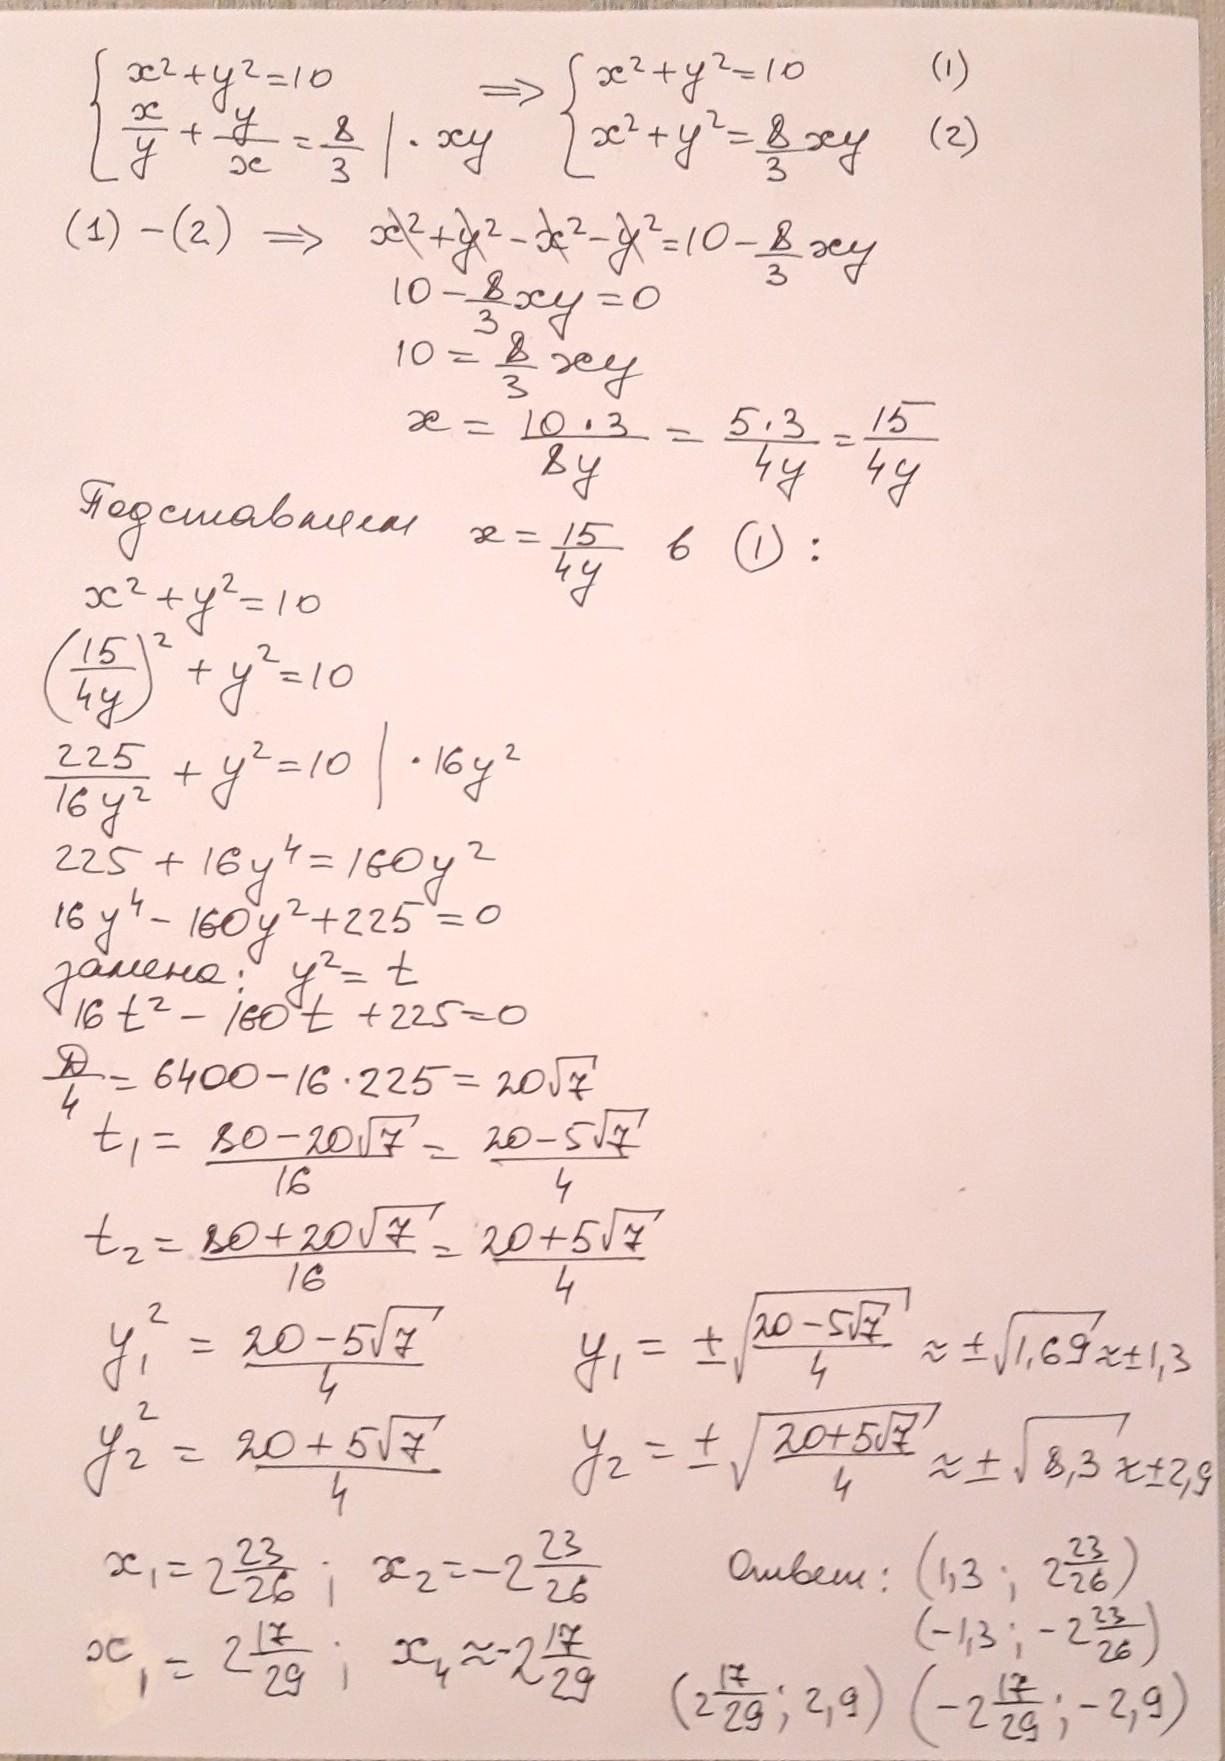 { x² + y² = 10 ⇒ { x² + y² = 10 (1)
x/y + y/x = 8/3 | · xy x² + y² = 8/3 xy (2)
(1) - (2) ⇒ x² + y² - x² - y² = 10 - 8/3 xy
10 - 8/3 xy = 0
10 = 8/3 xy
x = 10·3/8y = 5·3/4y = 15/4y
Подставим x = 15/4y в (1) :
x² + y² = 10
(15/4y)² + y² = 10
225/16y² + y² = 10 | · 16y²
225 + 16y⁴ = 160y²
16y⁴ - 160y² + 225 = 0
замена: y² = t
16t² - 160t + 225 = 0
D/4 = 6400 - 16·225 = 20√7
t₁ = 80-20√7/16 = 20-5√7/4
t₂ = 80+20√7/16 = 20+5√7/4
y₁² = 20-5√7/4 y₁ = ±√(20-5√7/4) ≈ ±√1,69 ≈ ±1,3
y₂² = 20+5√7/4 y₂ = ±√(20+5√7/4) ≈ ±√8,3 ≈ ±2,9
x₁ = 2 23/26 ; x₂ = -2 23/26 Ответ: (1,3 ; 2 23/26)
(-1,3 ; -2 23/26)
x₁ = 2 17/29 ; x₄ ≈ -2 17/29
(2 17/29 ; 2,9) (-2 17/29 ; -2,9)